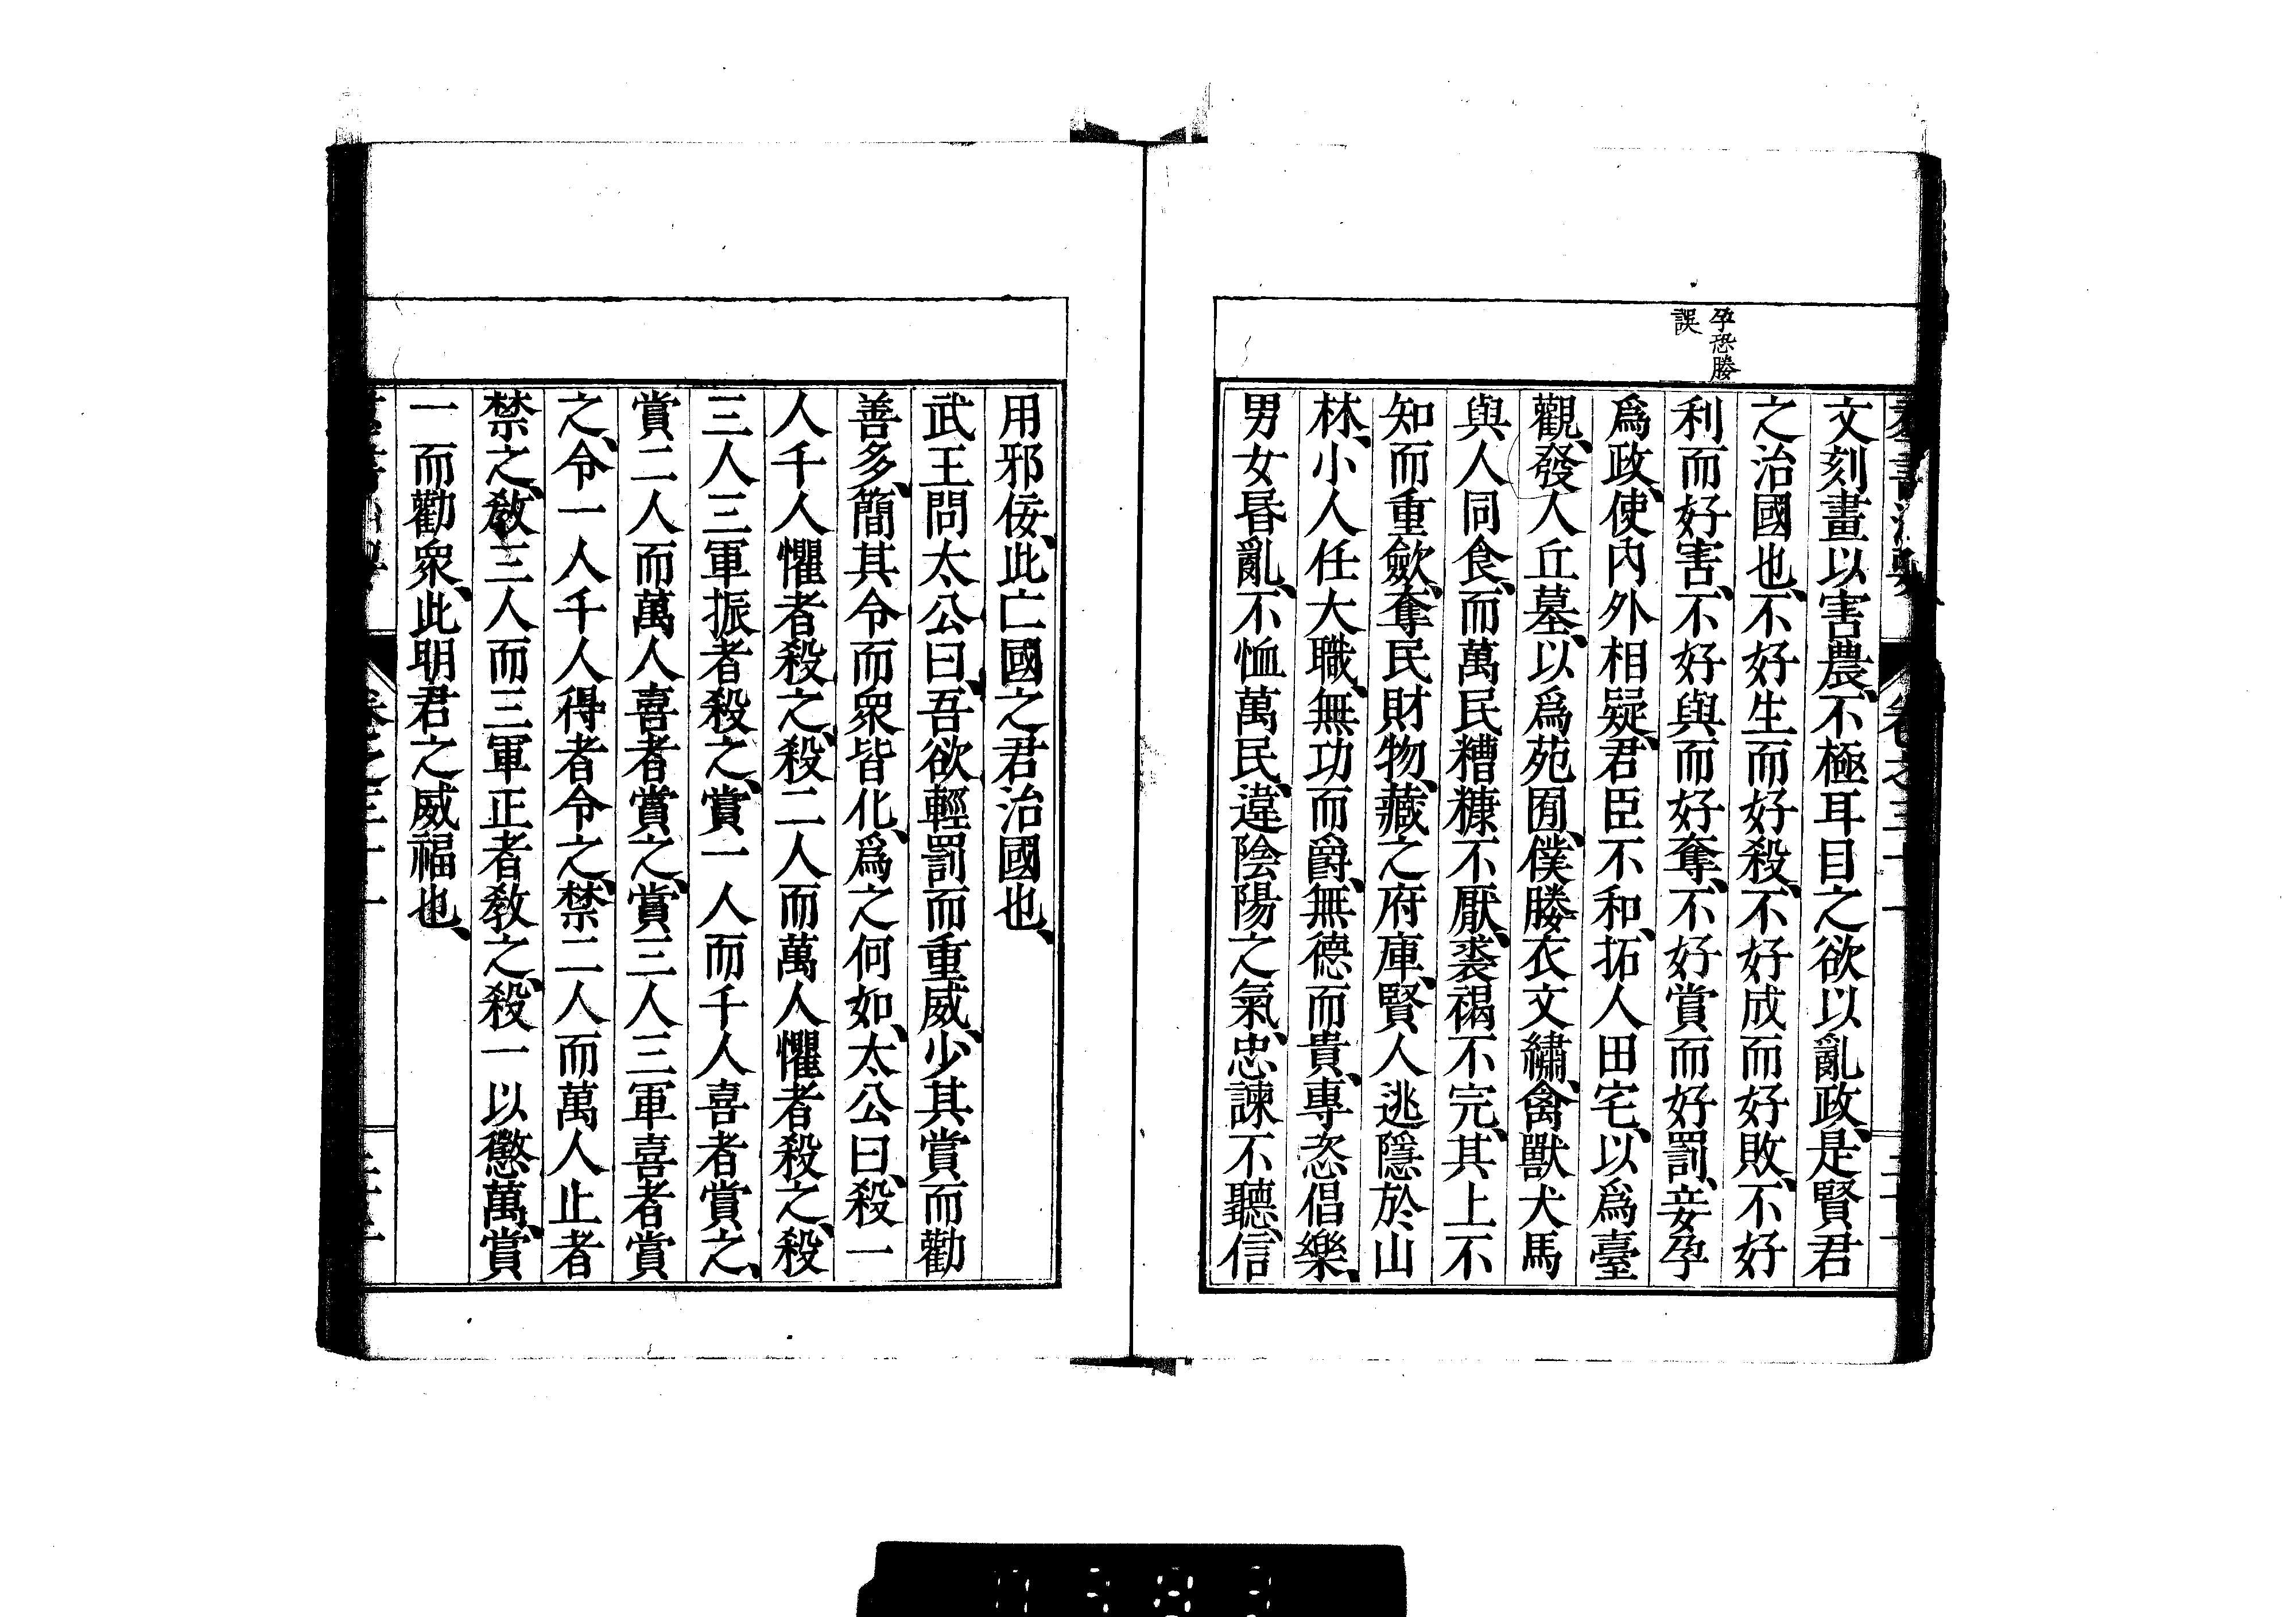 孕恐媵
誤
文刻畫以害農、不極耳目之欲以亂政、是賢君
之治國也、不好生而好殺、不好成而好敗、不好
利而好害、不好與而好奪、不好賞而好罰、妾孕
爲政、使內外相疑、君臣不和、拓人田宅、以爲臺
觀、發人丘墓、以爲苑囿、僕媵衣文繡、禽獸犬馬
與人同食、而萬民糟糠不厭、裘褐不完、其上不
知而重斂、奪民財物、藏之府庫、賢人逃隱於山
林、小人任大職、無功而爵、無德而貴、專恣倡樂、
男女昬亂、不恤萬民、違陰陽之氣、忠諫不聽、信
用邪佞、此亡國之君治國也、
武王問太公曰、吾欲輕罰而重威、少其賞而勸
善多、簡其令而衆皆化、爲之何如、太公曰、殺一
人千人懼者殺之、殺二人而萬人懼者殺之、殺
三人三軍振者殺之、賞一人而千人喜者賞之、
賞二人而萬人喜者賞之、賞三人三軍喜者賞
之、令一人千人得者令之、禁二人而萬人止者
禁之、敎三人而三軍正者敎之、殺一以懲萬、賞
一而勸衆、此明君之威福也、